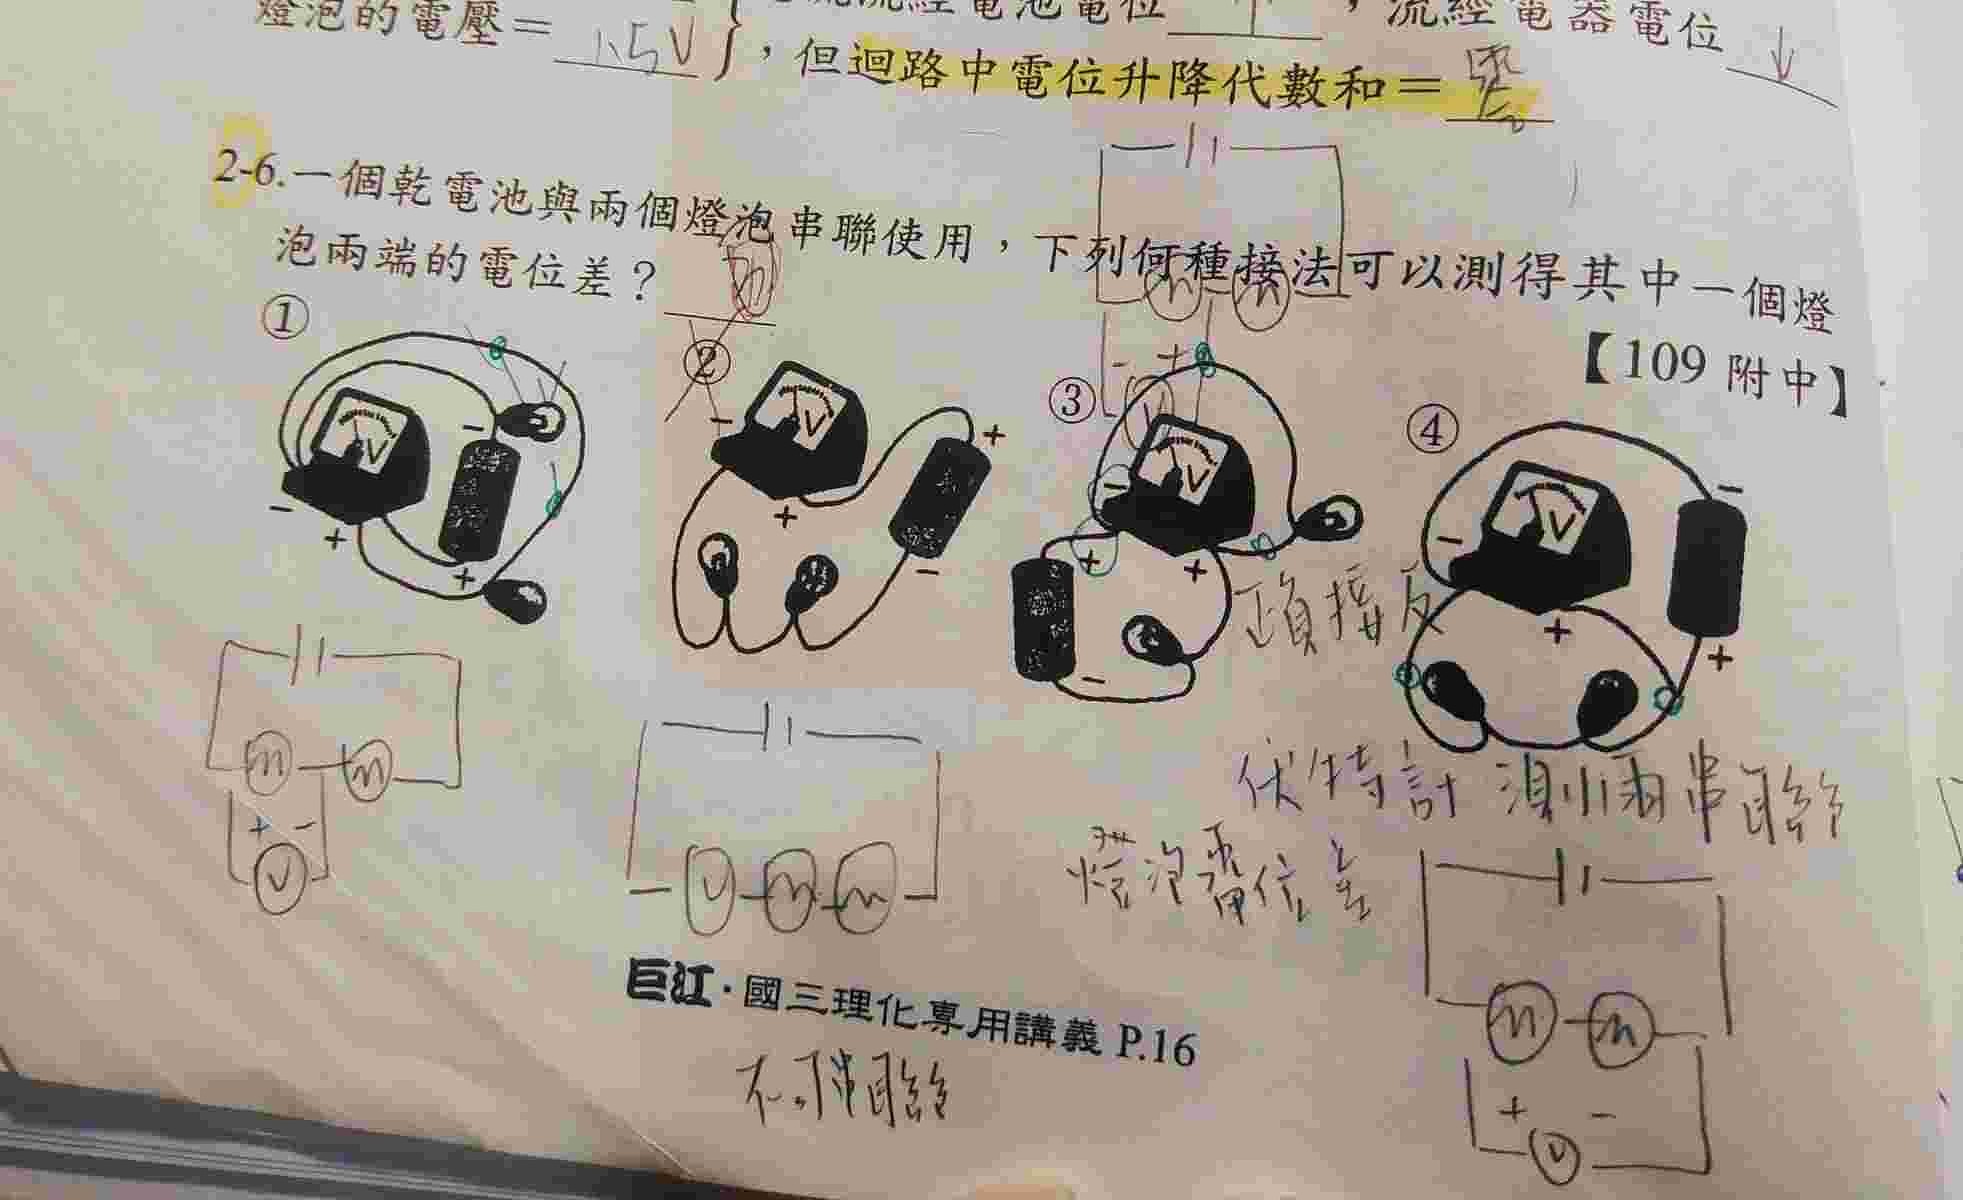 燈泡的電壓= 1.5V
流經電池電位 ↑ ,流經電器電位 ↓
,但迴路中電位升降代數和= 零。
2-6.一個乾電池與兩個燈泡串聯使用,下列何種接法可以測得其中一個燈
泡兩端的電位差?
【109 附中】
① ② ③ ④
V V V V
- + - +
- + + -
- + + -
- + - +
接反
伏特計 測兩串聯
燈泡電位差
+ - V
V
- + V
+ - V
巨江·國三理化專用講義 P.16
不可串聯